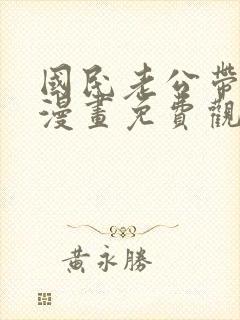 國民老公帶
漫畫免費觀
黃永勝